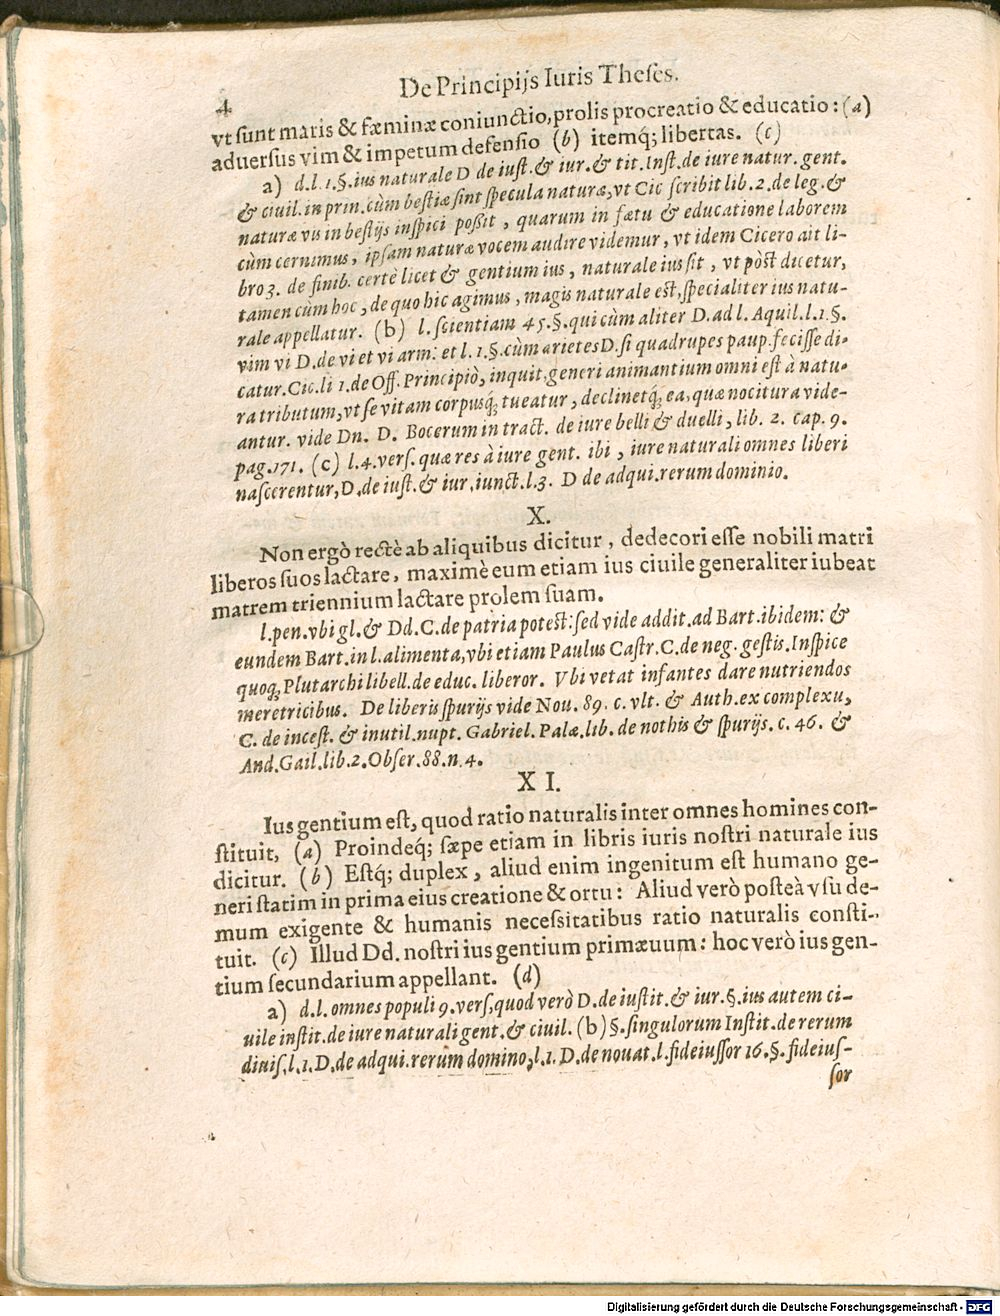 4
De Principijs Iuris Theses.
vt sunt maris & fæminæ coniunctio, prolis procreatio & educatio: (a)
aduersus vim & impetum defensio (b) itemq́; libertas. (c)
a) d.l. 1.§. ius naturale D de iust. & iur. & tit. Inst. de iure natur. gent.
& ciuil. in prin. cùm bestiæ sint specula naturæ, vt Cic scribit lib. 2. de leg. &
naturæ vis in bestijs inspici poßit, quarum in fœtu & educatione laborem
cùm cernimus, ipsam naturæ vocem audire videmur, vt idem Cicero ait li-
bro 3. de finib. certè licet & gentium ius, naturale ius sit, vt pòst dicetur,
tamen cùm hoc, de quo hic agimus, magis naturale est, specialiter ius natu-
rale appellatur. (b) l. scientiam 45.§. qui cùm aliter D. ad l. Aquil. l. 1 §.
vim vi D. de vi et vi arm: et l. 1 §. cùm arietes D. si quadrupes paup. fecisse di-
catur. Cic. li 1. de Off. Principiò, inquit, generi animantium omni est à natu-
ra tributum, vt se vitam corpusq́; tueatur, declinetq́; ea, quæ nocitura vide-
antur. vide Dn. D. Bocerum in tract. de iure belli & duelli, lib. 2. cap. 9.
pag. 171. (c) l. 4. vers. quæ res à iure gent. ibi, iure naturali omnes liberi
nascerentur, D. de iust. & iur, iunct. l. 3. D de adqui. rerum dominio.
X.
Non ergò rectè ab aliquibus dicitur, dedecori esse nobili matri
liberos suos lactare, maximè eum etiam ius ciuile generaliter iubeat
matrem triennium lactare prolem suam.
l. pen. vbi gl. & Dd. C. de patria potest: sed vide addit. ad Bart. ibidem: &
eundem Bart. in l. alimenta, vbi etiam Paulus Castr. C. de neg. gestis. Inspice
quoq; Plutarchi libell. de educ. liberor. Vbi vetat infantes dare nutriendos
meretricibus. De liberis spurijs vide Nou. 89. c. vlt. & Auth. ex complexu,
C. de incest. & inutil. nupt. Gabriel. Palæ. lib. de nothis & spurijs. c. 46. &
And. Gail. lib. 2. Obser. 88. n. 4.
XI.
Ius gentium est, quod ratio naturalis inter omnes homines con-
stituit, (a) Proindeq́; sæpe etiam in libris iuris nostri naturale ius
dicitur. (b) Estq́; duplex, aliud enim ingenitum est humano ge-
neri statim in prima eius creatione & ortu: Aliud verò posteà vsu de-
mum exigente & humanis necessitatibus ratio naturalis consti-
tuit. (c) Illud Dd. nostri ius gentium primæuum: hoc verò ius gen-
tium secundarium appellant. (d)
a) d.l. omnes populi 9. vers, quod verò D. de iustit. & iur. §. ius autem ci-
uile instit. de iure naturali gent. & ciuil. (b) §. singulorum Instit. de rerum
diuis, l. 1. D. de adqui. rerum domino, l. 1. D. de nouat. l. fideiussor 16. §. fideius-
sor
Digitalisierung gefördert durch die Deutsche Forschungsgemeinschaft - DFG